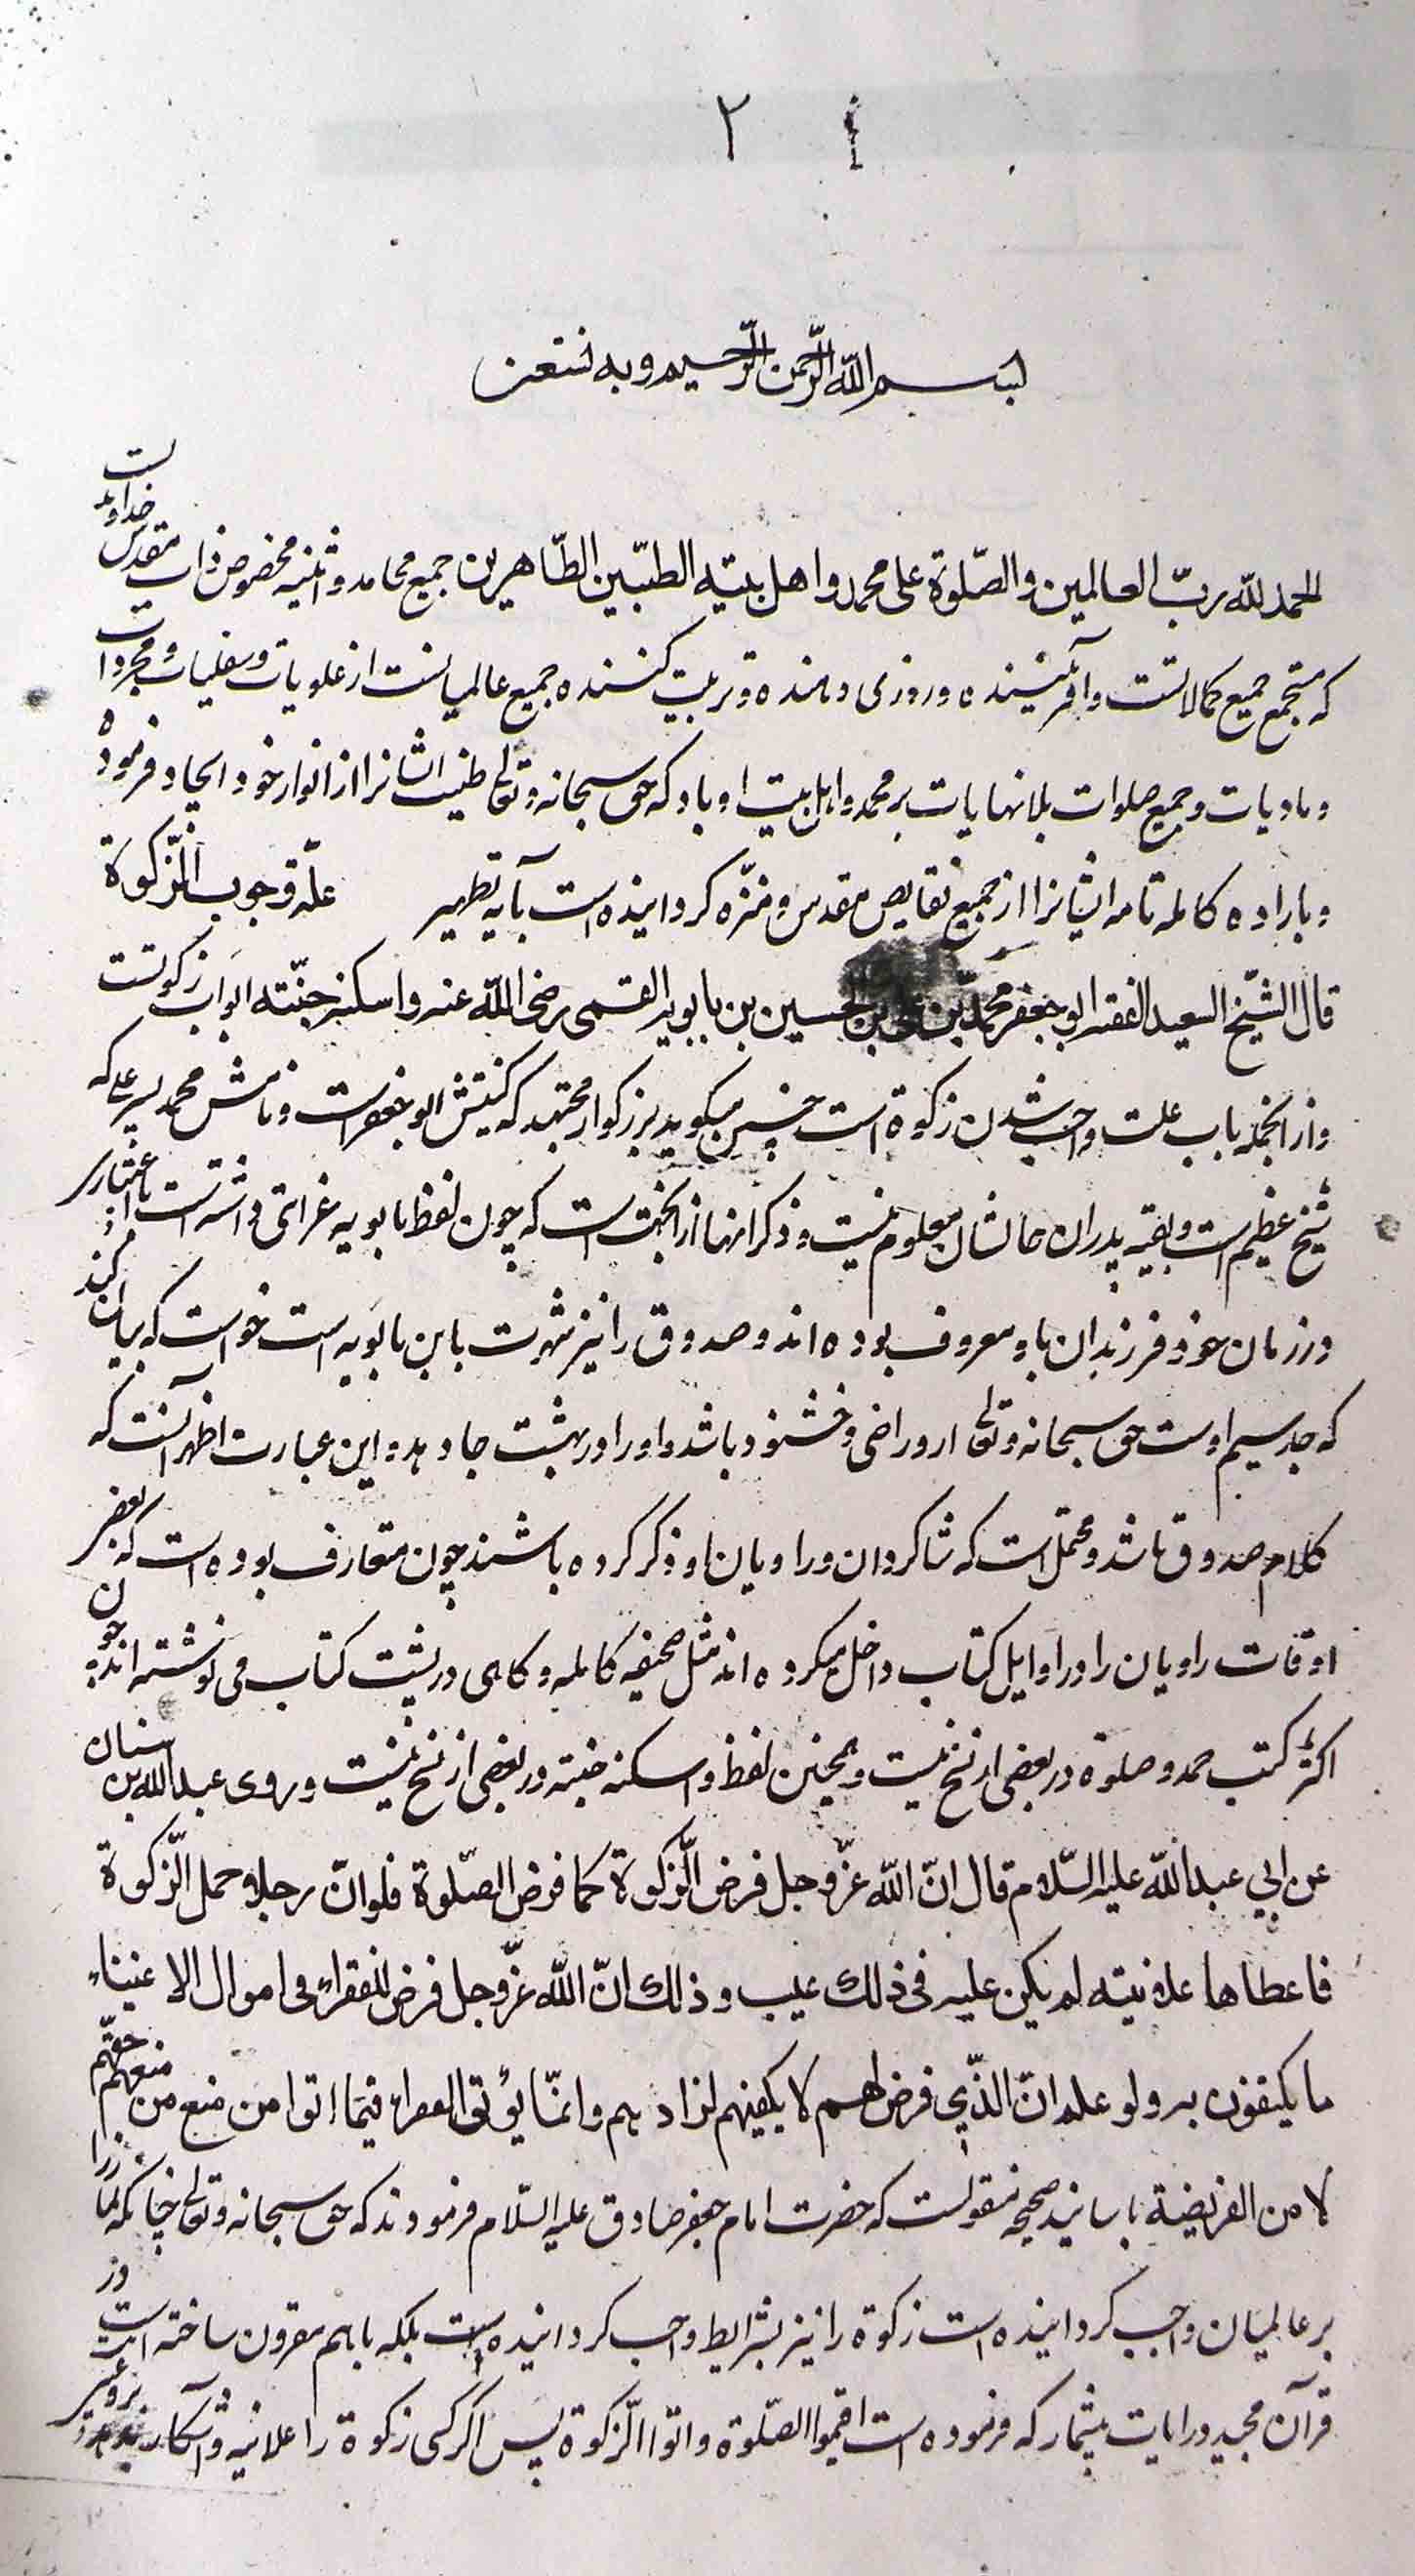 ٢ ٤
بسم الله الرّحمن الرّحيم وبه نستعين
الحمد لله ربّ العالمين والصّلوة على محمد واهل بيته الطيّبين الطّاهرين جميع محامد واثنيه مخصوص ذات مقدس خداوند يست
كه مستجمع جميع كمالاتست وآفريننده وروزى دهنده وتربيت كننده جميع عالميانست از علويات وسفليات ومجردات
وماديات وجميع صلوات بلا نهايات بر محمد واهل بيت او باد كه حق سبحانه وتعالى طينت ايشانرا از انوار خود ايجاد فرموده
وباراده كامله تامه ايشانرا از جميع نقايص مقدس ومنزّه كردانيده است بآيه تطهير علّة وجوب الزّكوة
قال الشّيخ السعيد الفقيه ابو جعفر محمّد بن على بن الحسين بن بابويه القمى رضى الله عنه واسكنه جنّته ابواب زكوتست
واز انجمله باب علت واجب شدن زكوة است چنين ميكويد بزركوار مجتهد كه كنيتش ابو جعفرست ونامش محمد پسر على كه
شيخ عظيم است وبقيه پدران حالشان معلوم نيست وذكر انها از انجهت است كه چون لفظ بابويه غرابتى داشته است باعتبارى
در زمان خود فرزندان باو معروف بوده اند وصدوق را نيز شهرت بابن بابويه است خواست كه بيان كند
كه جد سيم اوست حق سبحانه وتعالى ازو راضى وخشنود باشد واورا در بهشت جا دهد واين عبارت اظهر آنست كه
كلام صدوق باشد ومحتمل است كه شاكردان وراويان او ذكر كرده باشند چون متعارف بوده است كه بعضى
اوقات راويان را در اوايل كتاب داخل ميكرده اند مثل صحيفه كامله وكاهى در پشت كتاب مى نوشته اند چون
اكثر كتب حمد وصلوة در بعضى از نسخ نيست وهمچنين لفظ واسكنه جنته در بعضى از نسخ نيست وروى عبد الله بن سنان
عن ابي عبد الله عليه السّلام قال انّ الله عزّ وجل فرض الزّكوة كما فرض الصّلوة فلو انّ رجلا حمل الزّكوة
فاعطاها علانيته لم يكن عليه فى ذلك عيب وذلك انّ الله عزّ وجل فرض للفقراء فى اموال الاغنياء
ما يكتفون به ولو علم انّ الذّي فرض لهم لا يكفيهم لزادهم وانمّا يؤتى الفقراء فيما اتوا من منع من منعهم حقّهم
لا من الفريضة باسانيد صحيحه منقولست كه حضرت امام جعفر صادق عليه السّلام فرمودند كه حق سبحانه وتعالى چنانكه نماز را
بر عالميان واجب كردانيده است زكوة را نيز بشرايط واجب كردانيده است بلكه باهم مقرون ساخته است در
قرآن مجيد در ايات بيشمار كه فرموده است اقيموا الصّلوة واتوا الزّكوة پس اكر كسى زكوة را علانيه وآشكار